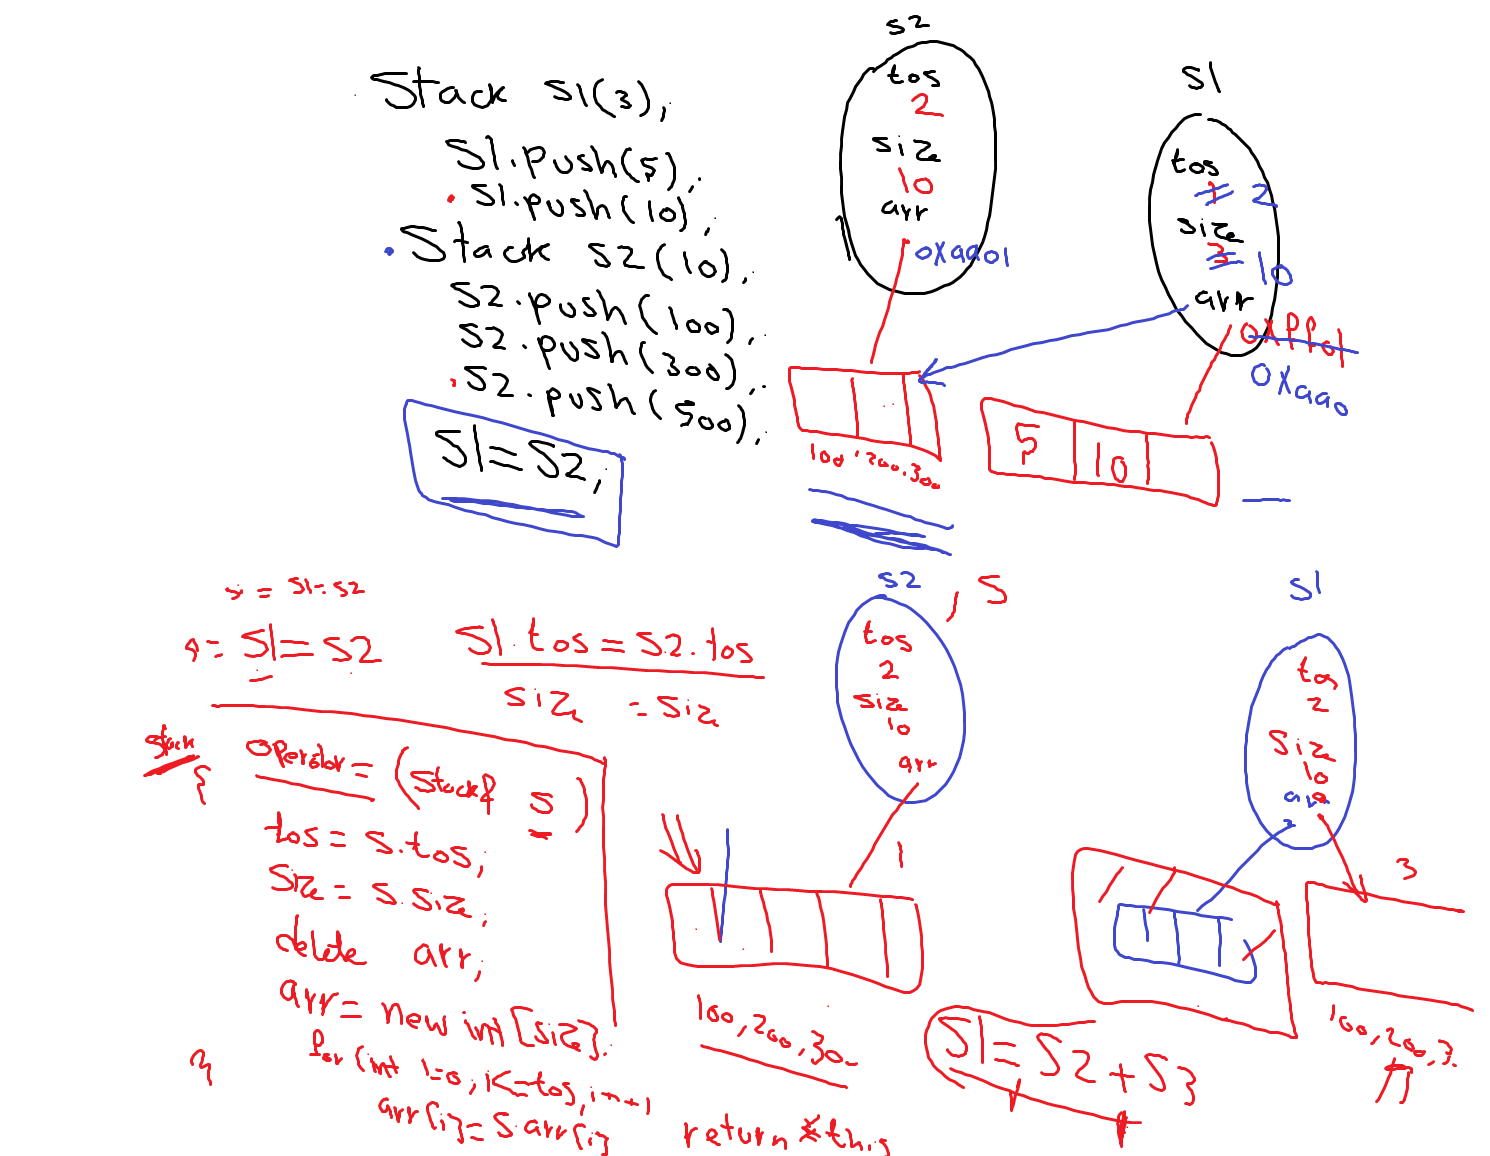 Stack S1(3);
S1.push(5);
S1.push(10);
Stack S2(10);
S2.push(100);
S2.push(300);
S2.push(500);
S1=S2;
S2
tos
2
size
10
arr
0xaa01
S1
tos
1 2
size
3 10
arr
0xff01
0xaa0
100, 200, 300
5 10
S1=S2
S1=S2
S1.tos=S2.tos
size =size
stack operator=(stack& s)
{
tos=s.tos;
size=s.size;
delete arr;
arr=new int[size];
for(int i=0;i<=tos;i++)
arr[i]=s.arr[i]
return *this
}
S2, S
tos
2
size
10
arr
1
100,200,300
S1
tos
2
size
10
arr
3
100,200,3
S1=S2+S3